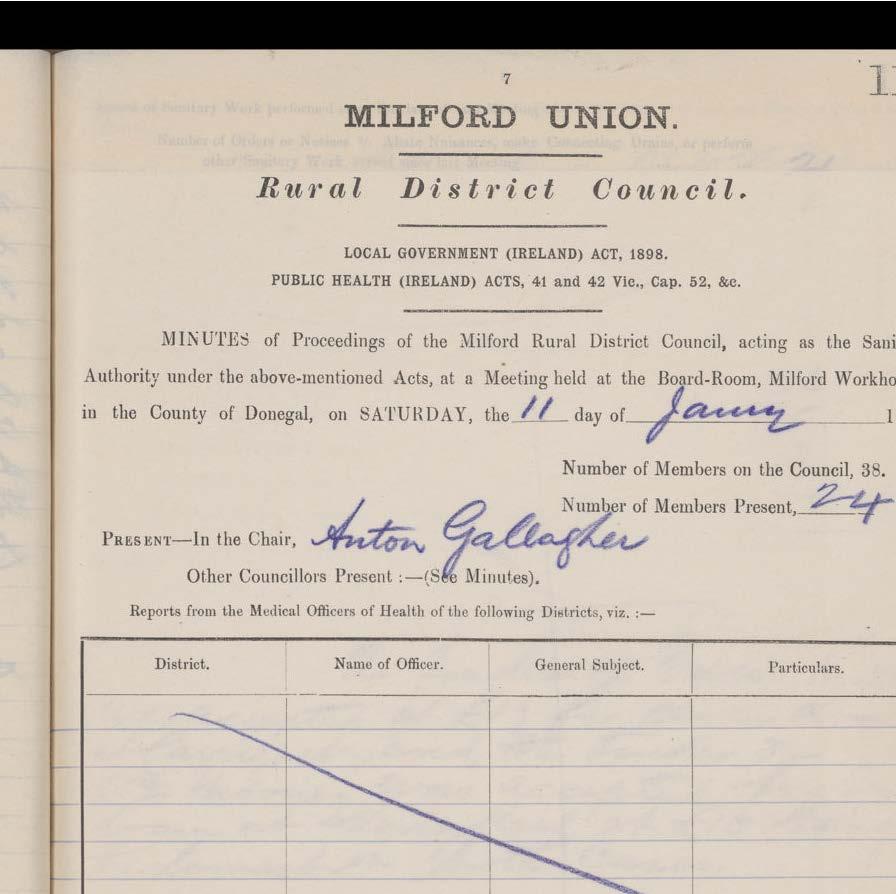 7
MILFORD UNION.
Rural District Council.
LOCAL GOVERNMENT (IRELAND) ACT, 1898.
PUBLIC HEALTH (IRELAND) ACTS, 41 and 42 Vic., Cap. 52, &c.
MINUTES of Proceedings of the Milford Rural District Council, acting as the Sani
Authority under the above-mentioned Acts, at a Meeting held at the Board-Room, Milford Workho
in the County of Donegal, on SATURDAY, the 11 day of Janry 1
Number of Members on the Council, 38.
Number of Members Present, 24
PRESENT—In the Chair, Anton Gallagher
Other Councillors Present :—(See Minutes).
Reports from the Medical Officers of Health of the following Districts, viz. :—
District. Name of Officer. General Subject. Particulars.